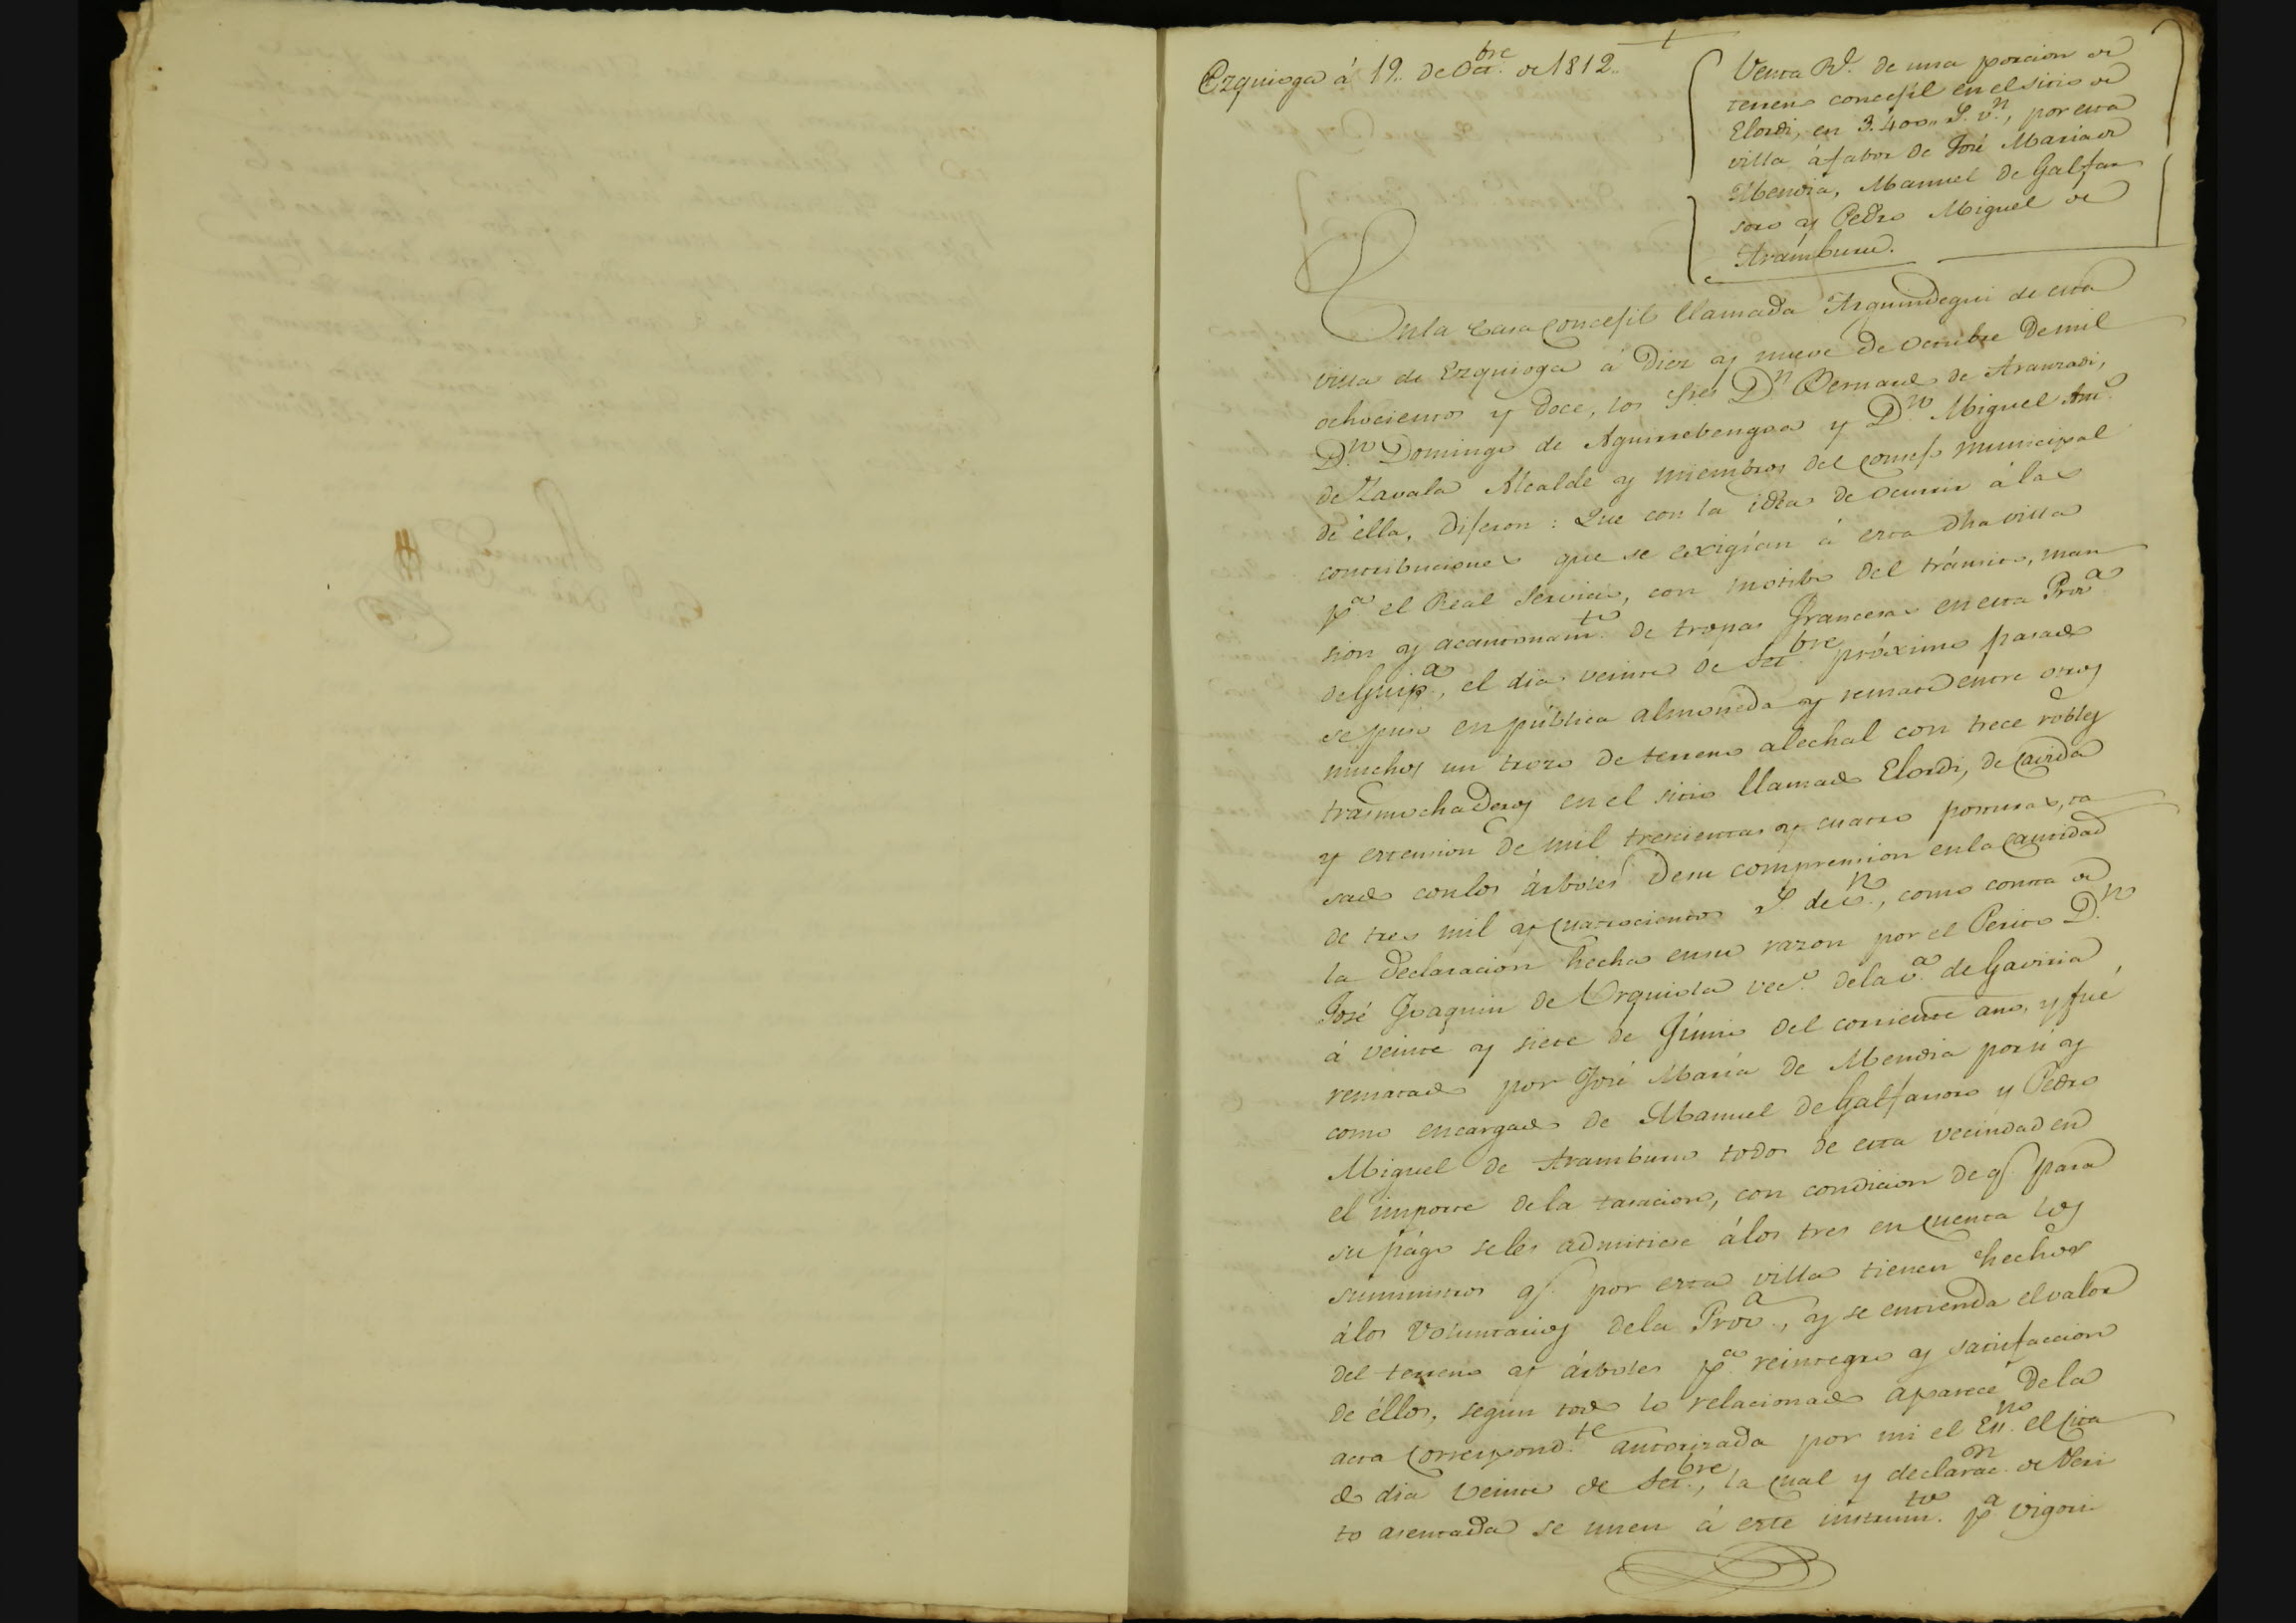 Ezquioga á 19.. de Oct.bre de 1812..
Venta Rl. de una porcion de
terreno concejil en el sitio de
Elordi, en 3.400.. Rs. vn., por esta
villa á fabor de José María de
Mendia, Manuel de Galfar
soro y Pedro Miguel de
Arámburu.
En la Casa Concejil llamada Arguindegui de esta
villa de Ezquioga á diez y nueve de Octubre de mil
ochocientos y doce, los Sres Dn. Bernardo de Aranzadi,
Dn. Domingo de Aguirrebengoa y Dn. Miguel Anto.
de Zavala Alcalde y miembros del Consejo municipal
de élla, dijeron: Que con la idea de ocurrir á las
contribuciones que se exigían á esta dha villa
pa. el Real Servicio, con motibo del tránsito, man
sion y acantonamto. de tropas francesas en esta Prova.
de Guipa., el dia veinte de Setbre. próximo pasado
se puso en pública almoneda y remate entre otros
muchos un trozo de terreno alechal con trece robles
trasmochaderos en el sitio llamado Elordi, de cavida
y estension de mil trescientas y cuatro posturas, ta
sado con los árboles de su compreension en la cantidad
de tres mil y cuatrocientos Rs. de vn., como consta de
la declaracion hecha en su razon por el Perito Dn.
José Joaquin de Urquiola veco. de la va. de Gaviria
á veinte y siete de Júnio del corriente ano, y fué
rematado por José María de Mendia por sí y
como encargado de Manuel de Galfarsoro y Pedro
Miguel de Aramburu todos de esta vecindad en
el importe de la tasacion, con condicion de q. para
su págo se les admitiese á los tres en cuenta los
suministros q. por esta villa tienen hechos
á los Voluntarios de la Prova., y se entienda el valor
del terreno y árboles pa. reintegro y satisfaccion
de éllos, segun todo lo relacionado aparece de la
acta correspondte. autorizada por mi el Esno. el cita
do dia veinte de Setbre., la cual y declaracn. de Peri
to asentada se unen á este instrumto. pa. vigori